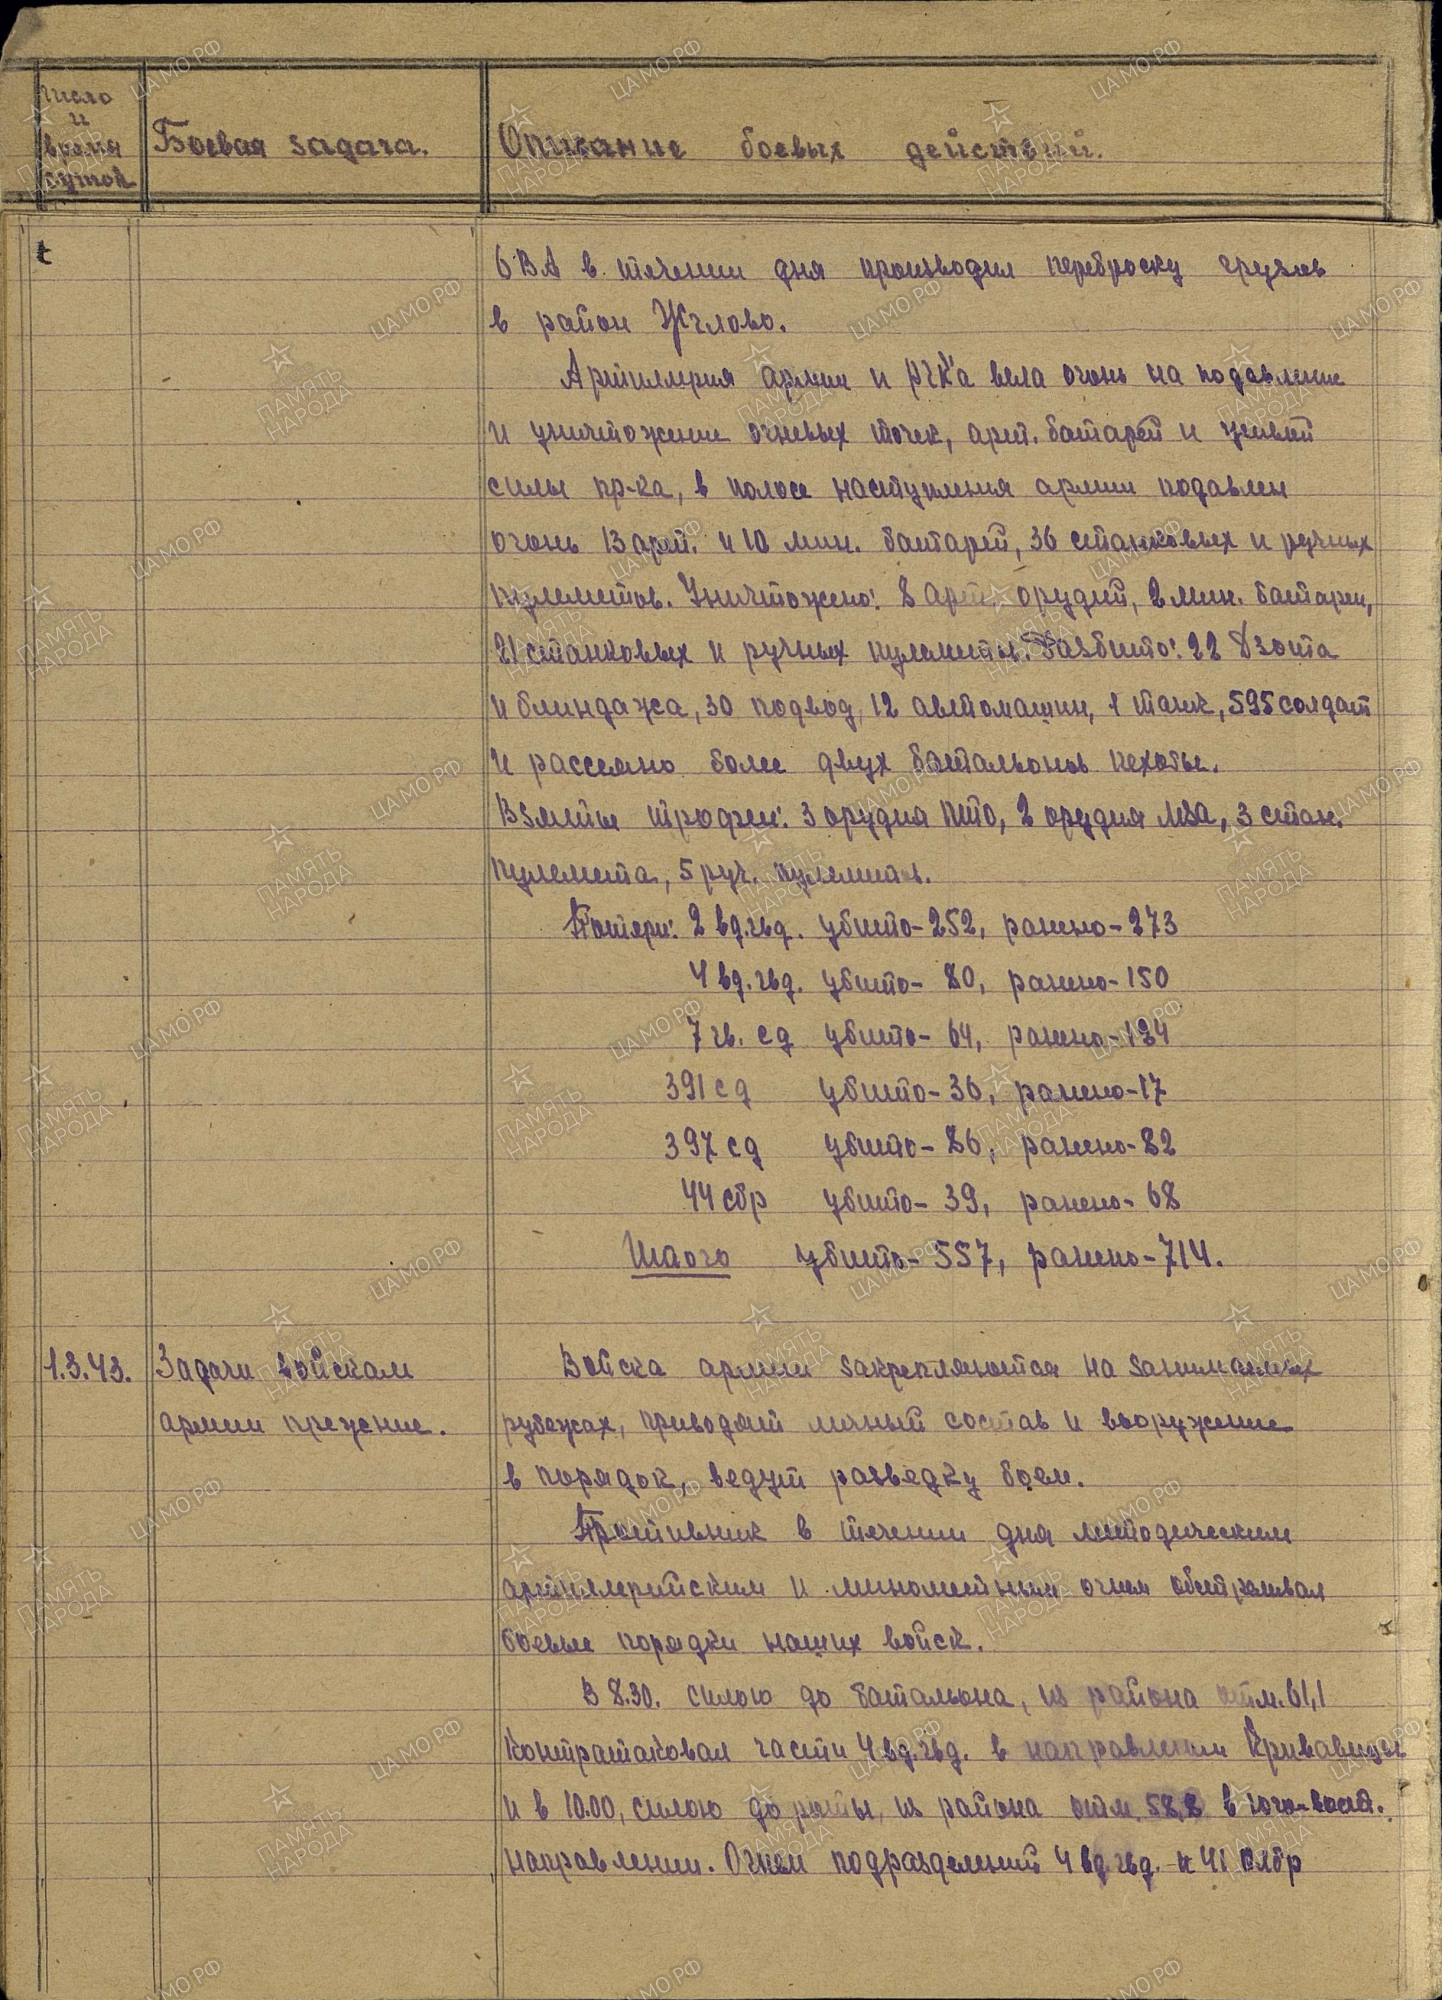 число
и
время
суток
Боевая задача.
Описание боевых действий.
6 ВА в течении дня производил переброску грузов
в район Жглово.
Артиллерия армии и РГК'а вела огонь на подавление
и уничтожение огневых точек, арт. батарей и живой
силы пр-ка, в полосе наступления армии подавлен
огонь 13 арт. и 10 мин. батарей, 36 станковых и ручных
пулеметов. Уничтожено: 8 арт. орудий, 2 мин. батареи,
21 станковых и ручных пулеметов. Разбито: 22 Дзота
и блиндажа, 30 подвод, 12 автомашин, 1 танк, 595 солдат
и рассеяно более двух батальонов пехоты.
Взяты трофеи: 3 орудия ПТО, 2 орудия МЗА, 3 стан.
пулемета, 5 руч. пулеметов.
Потери: 2 вд.гвд. убито-252, ранено-273
4 вд.гвд. убито- 80, ранено-150
7 гв. сд убито- 64, ранено-124
391 сд убито- 36, ранено-17
397 сд убито- 86, ранено-82
44 сбр убито- 39, ранено- 68
Итого убито-557, ранено-714.
1.3.43.
Задачи войскам
армии прежние.
Войска армии закрепляются на занимаемых
рубежах, приводят личный состав и вооружение
в порядок, ведут разведку боем.
Противник в течении дня методическим
артиллерийским и минометным огнем обстреливал
боевые порядки наших войск.
В 8.30. силою до батальона, из района отм. 61,1
контратаковал части 4 вд.гвд. в направлении Кривавицы
и в 10.00, силою до роты, из района отм. 58,8 в юго-вост.
направлении. Огнем подразделений 4 вд.гвд. и 41 слбр